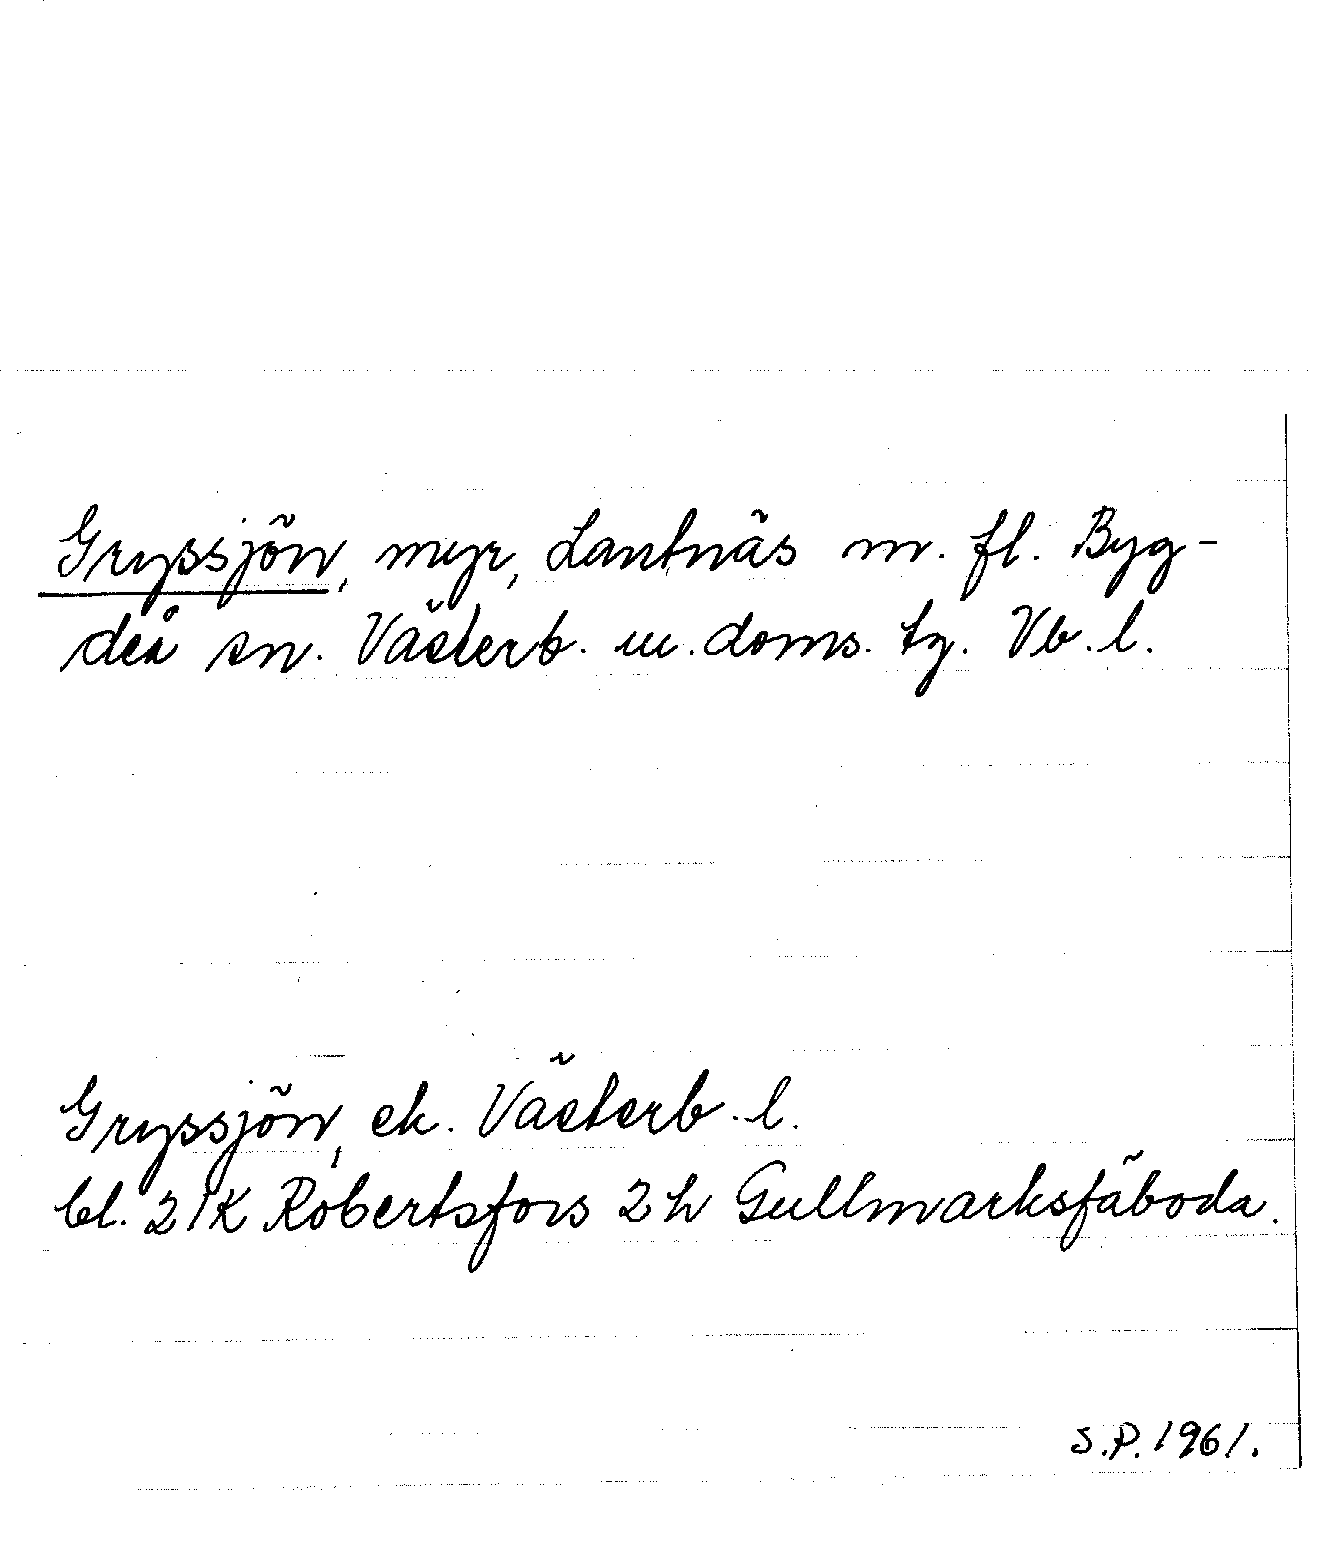 Gryssjön, myr, Lantnäs m. fl. Byg-
deå sn. Västerb. m. doms. tg. Vb. l.
Gryssjön, ek. Västerb. l.
bl. 21K Robertsfors 2h Gullmarksfäboda.
S.P. 1961.